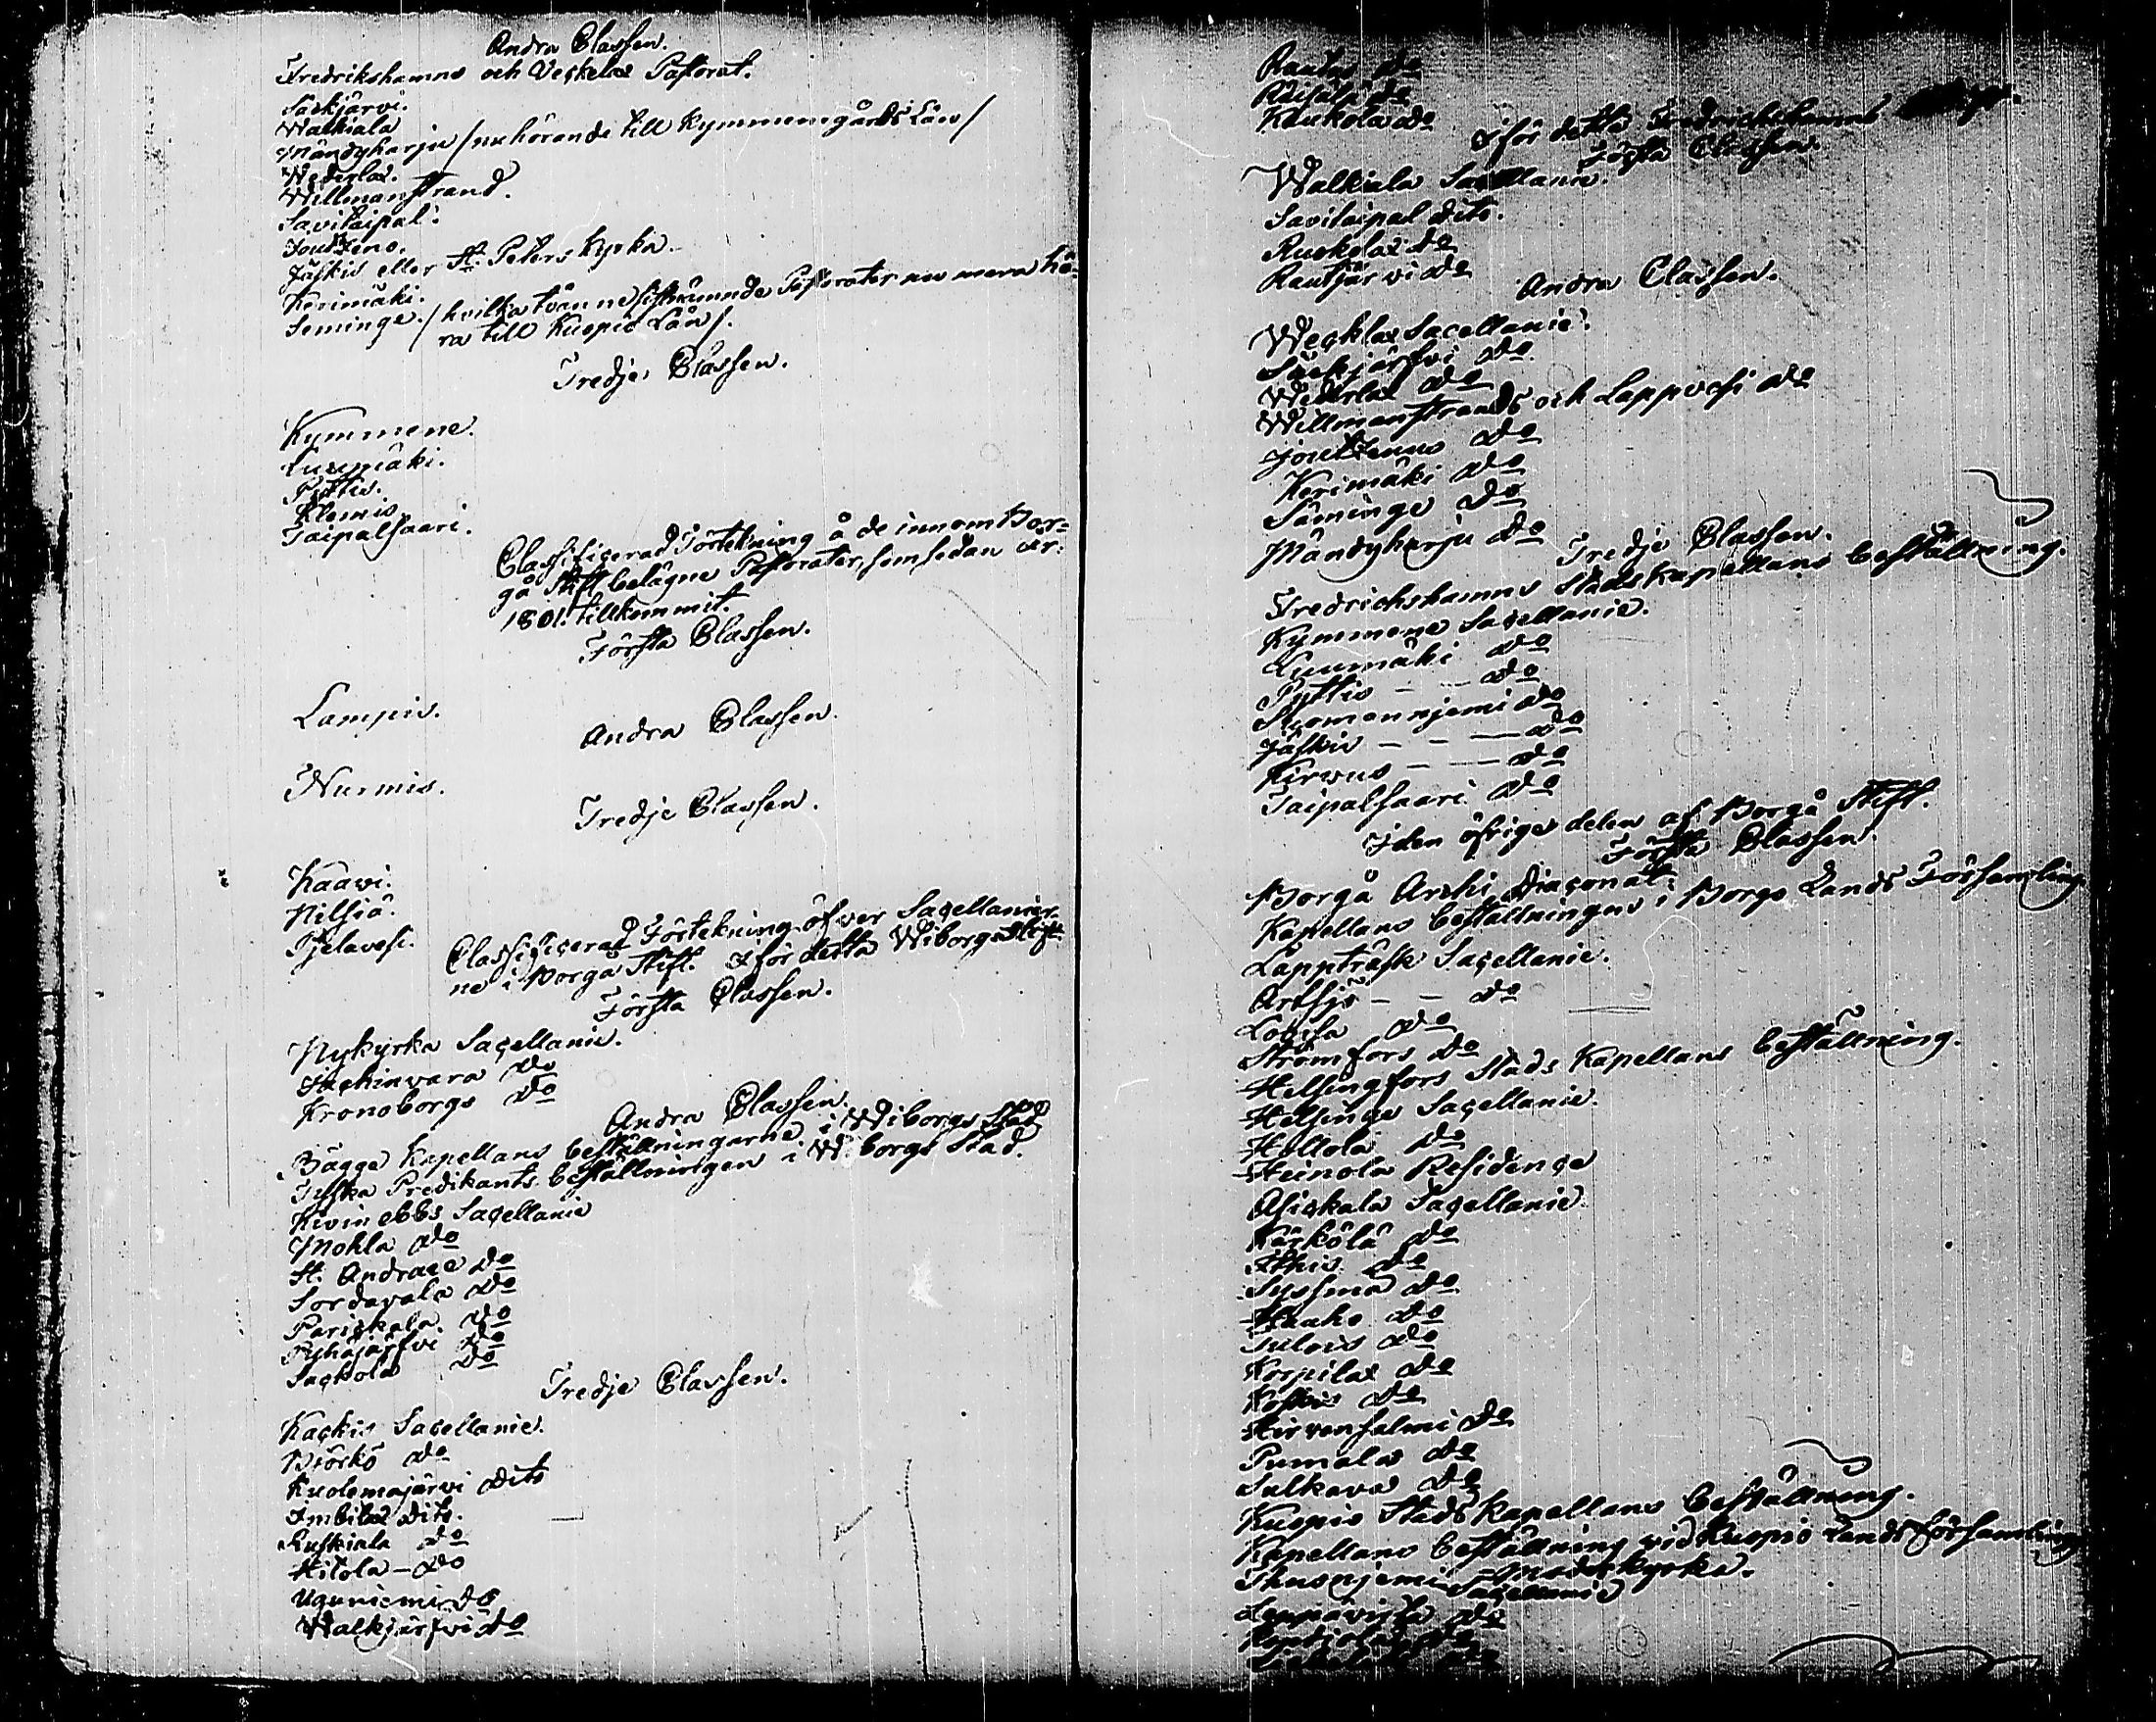 Andra Classen.
Fredrikshamns och Veckelax Pastorat.
Säckjärvi.
Walkiala
Mändyharju /nu hörande till Kymmenegårds Län/
Wederlax.
Willmanstrand.
Savitaipal.
Joutzeno.
Jäskis eller St. Peters Kyrka.
Kerimäki.
Seminge. /hvilka tvänne sistnämnde Pastorater nu mera hö-
ra till Kuopio Län/.
Tredje Classen.
Kymmene.
Luumäki.
Pyttis.
Klemis.
Taipalsaari.
Classificerad Förtekning å de innom Bor-
gå Stift belägne Pastorater, som sedan år
1801. tillkommit.
Första Classen.
Lampis.
Andra Classen.
Nurmis.
Tredje Classen.
Kaavi.
Nilsiä.
Pjelavesi.
Classificerad Förtekning öfver Sacellanier-
ne i Borgå Stift. I för detta Wiborgs
Första Classen.
Nykyrka Sacellanie.
Jachinvara do
Kronoborgs do
Andra Classen.
Bägge Kapellans beställningarne i Wiborgs Stad
Tyska Predikants beställningen i Wiborgs Stad.
Kivinebbs Sacellanie
Mohla do
St. Andraee do
Sordavala do
Parickala do
Pyhäjärfvi do
Sackola do
Tredje Classen.
Kackis Sacellanie.
Biörkö do
Kuolemajärvi dito
Imbilax dito.
Ruskiala do
Hitola – do
Uguniemi do
Walkjärfvi do
Rautus do
Räisälä do
Kaukola do
I för detta Fredrichshamns
Första Classen.
Walkiala Sacellanie.
Savitaipal dito.
Ruokolax do
Rautjärwi do
Andra Classen.
Wecklax Sacellanie.
Säckjärfvi do
Wederlax do
Willmanstrands och Lappvesi do
Joutzenus do
Kerimäki do
Säminge do
Mändyharju do
Tredje Classen.
Fredrichshamns Stadskapellans beställning.
Kymmene Sacellanie.
Luumäki do
Pyttis – – do
Suomenniemi do
Jäskis – – – do
Kirvus – – – do
Taipalsaari do
I den öfriga delen af Borgå Stift.
Första Classen.
Borgå Archi Diaconat.
Kapellans beställningen i Borgo Lands Församling
Lappträsk Sacellanie.
Artsjö – – do
Lovisa do
Strömfors do
Helsingfors Stads Kapellans beställning.
Helsinge Sacellanie.
Hollola do
Heinola Residence
Asickala Sacellanie.
Kärkölä do
Ithis do
Syssmä do
Hauho do
Tulois do
Korpilax do
Koskis do
Hirvensalmi do
Pumala do
Sulkava do
Kuopio Stads Kapellans beställning.
Kapellans beställning vid Kuopio Lands församling
Moderkyrka.
Thusniemi Sacellanie
Leppävirta do
Kontiolax do